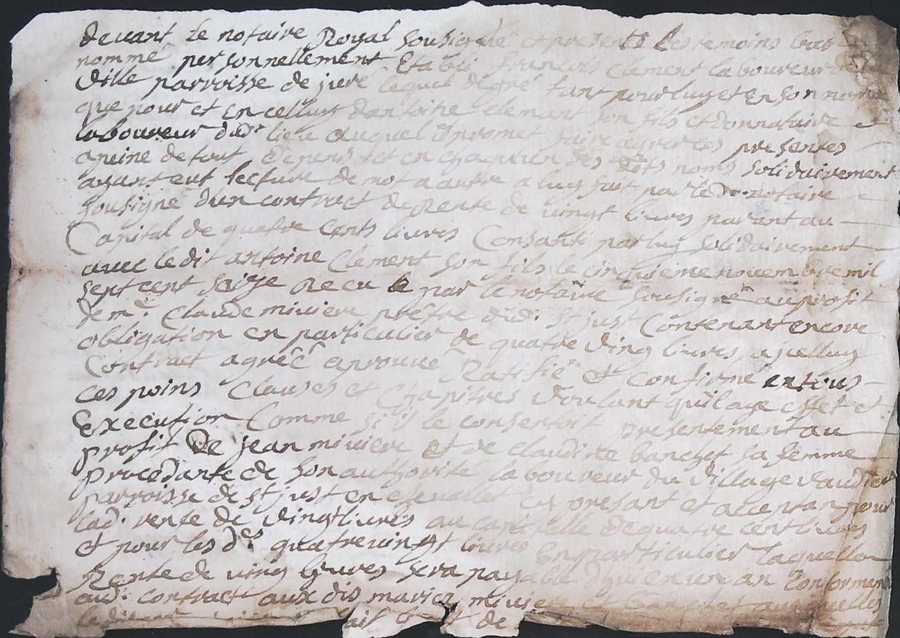 devant le notaire Royal sousigné et presents les temoins bas
nommé personnellement Etabli francois Clement laboureur du
Ville parroisse de jure lequel de gré tant pour luy et en son nom
que pour et en celluy dantoine clemant son fils et donnataire
laboureur dud.t lieu auquel promet faire agreer ces presentes
a peine de tout depens et en chaqun des dts noms solidairement
ayant eut lecture de mot a autre a luy fait par led. notaire
sousigné dun contract de Rente de vingt livres parant au
Capital de quatre Cents livres Consanti par luy solidairement
avec le dit antoine Clement son fils le cinquieme novembre mil
sept cent saize Recu le par le notaire sousigné au profit
de m.r Claude miviere prêtre dud. St just Contenant encore
obligation en particulier de quatre ving livres, a jcelluy
Contract agreé aprouvé Ratiffié et confirmé en tous
ces poins Clauses et chapitres voulant quil aye effet et
Execution Comme si il le consentoit presentement au
profit de jean miviere et de claudine banchet sa femme
procedante de son authorité laboureur du village
parroisse de st just en chevallet cy present et acceptan pour
lad. rente de vingt livres au capitalle de quatre cent livres
et pour les d.s quatre vingt livres en particulier laquelle
Rente de ving livres sera payable dhuy en un an Conformement
aud. contract aux dis mariez miviere et banchet auxquelles
ledit